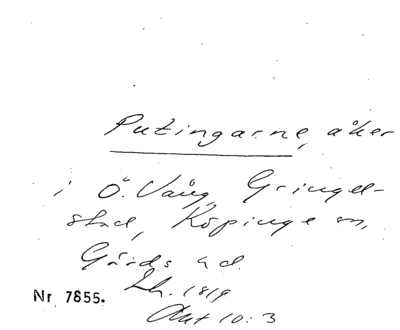 Putingarne, åker
i Ö. Vång, Gringel-
stad, Köpinge sn,
Gärds hd.
Lh. 1819
Akt 10:3
Nr 7855.